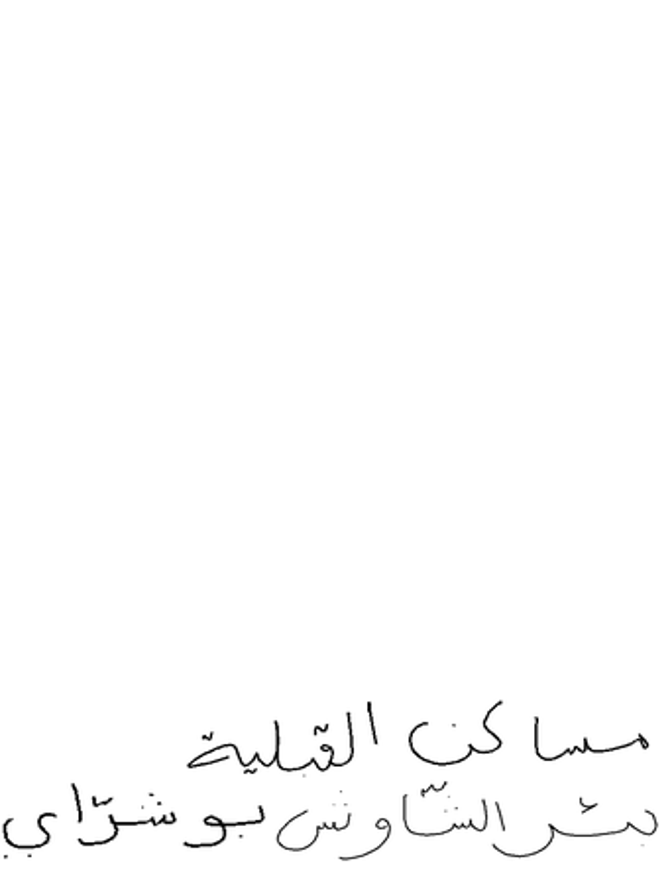 مساكن القبلية
بئر الشّاوش بوشرّاي